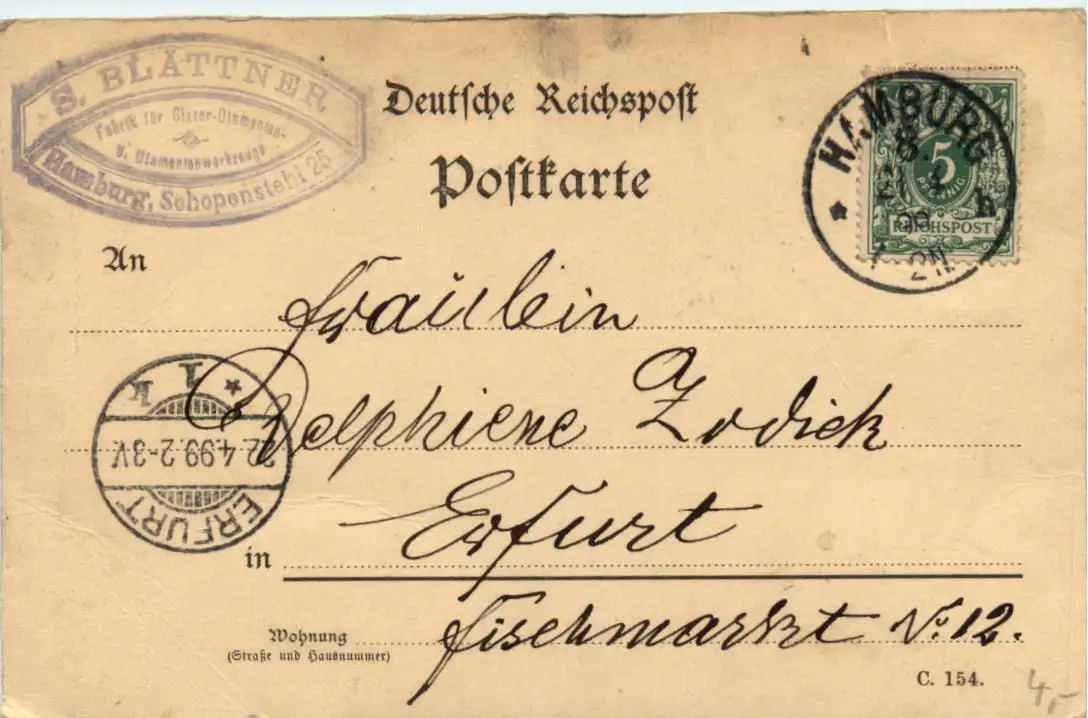 S. BLÄTTNER
Fabrik für Glaser-Diamanten-
u. Diamantenwerkzeuge
Hamburg, Schopenstehl 25
Deutsche Reichspost
Postkarte
HAMBURG
8.
21 4
99
h
2N.
5
PFENNIG
REICHSPOST
An
Fräulein
Delphiene Zodick
Erfurt
in
Fischmarkt No. 12.
Wohnung
(Straße und Hausnummer)
ERFURT
22.4.99.2-3V
1 k
C. 154.
4,-